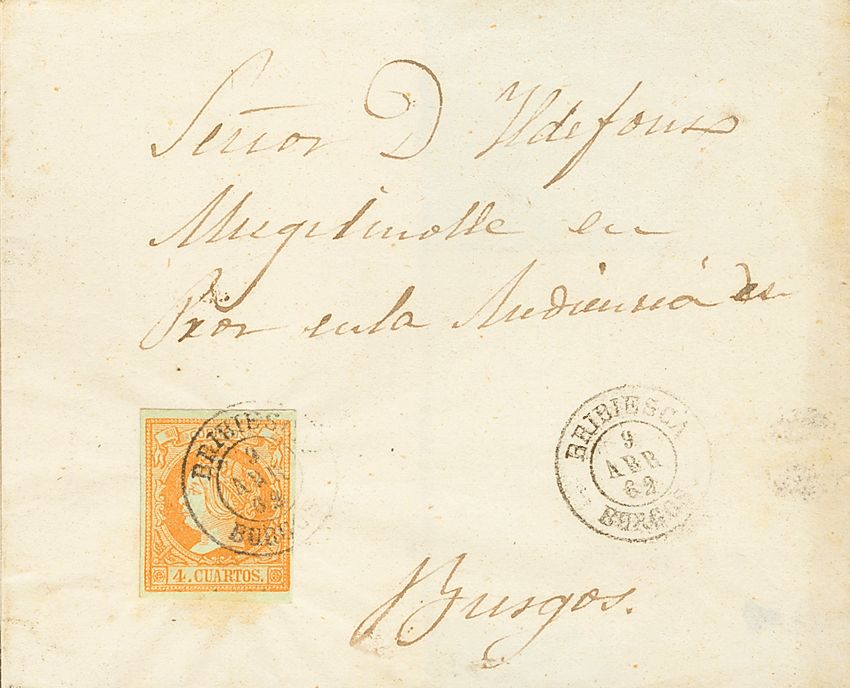 Señor D Ildefonso
en
Pror en la Audiencia de
BRIBIESCA
9
ABR
62
BURGOS
4. CUARTOS.
BRIBIESCA
9
ABR
62
BURGOS
Burgos.